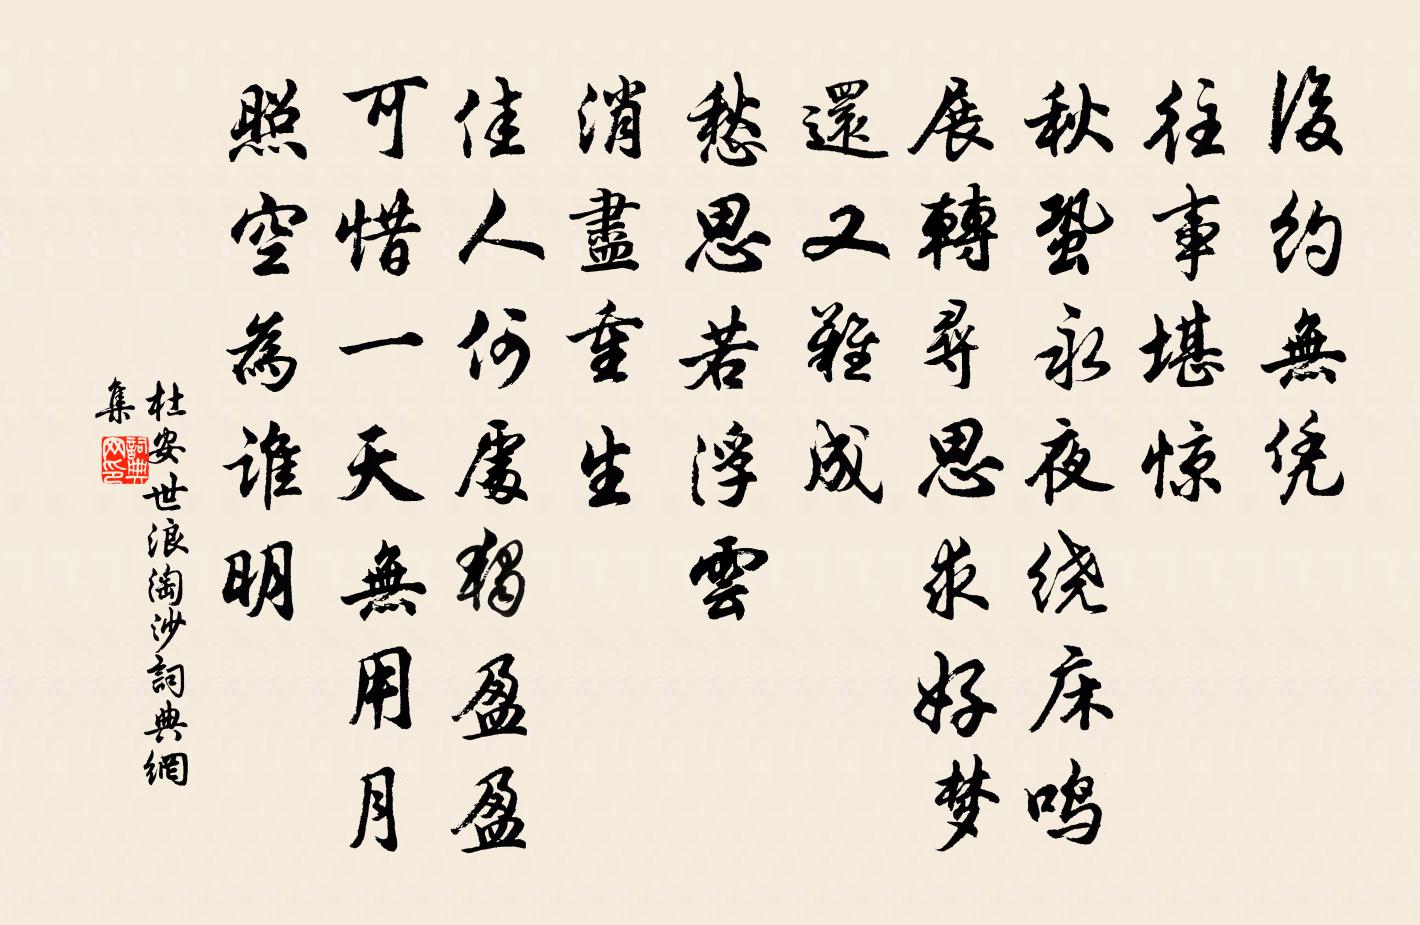 後约無凭
往事堪惊
秋蛩永夜绕床鸣
展轉尋思求好梦
還又難成
愁思若浮雲
消盡重生
佳人何處獨盈盈
可惜一天無用月
照空為誰明
杜安世浪淘沙詞典網
集
詞典
网印